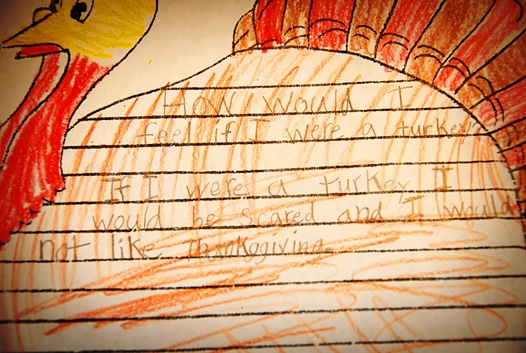 How would I
feel if I were a turkey?
If I were a turkey I
would be scared and I would
not like thanksgiving